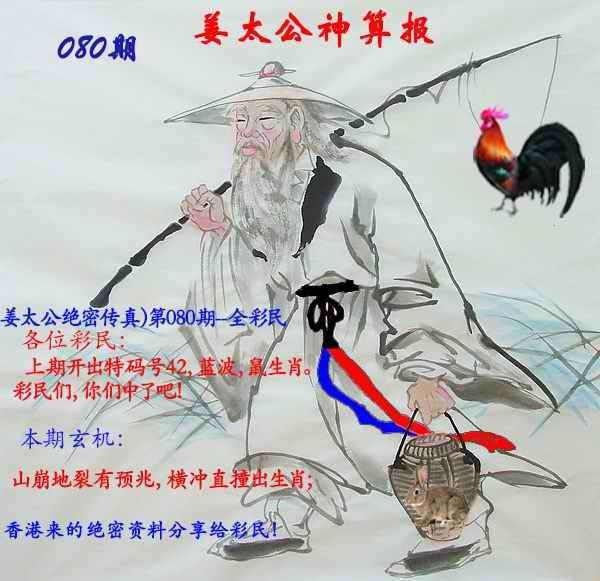 姜太公神算报
080期
姜太公绝密传真)第080期--全彩民
各位彩民:
上期开出特码号42,蓝波,鼠生肖。
彩民们,你们中了吧!
本期玄机:
山崩地裂有预兆,横冲直撞出生肖;
香港来的绝密资料分享给彩民!